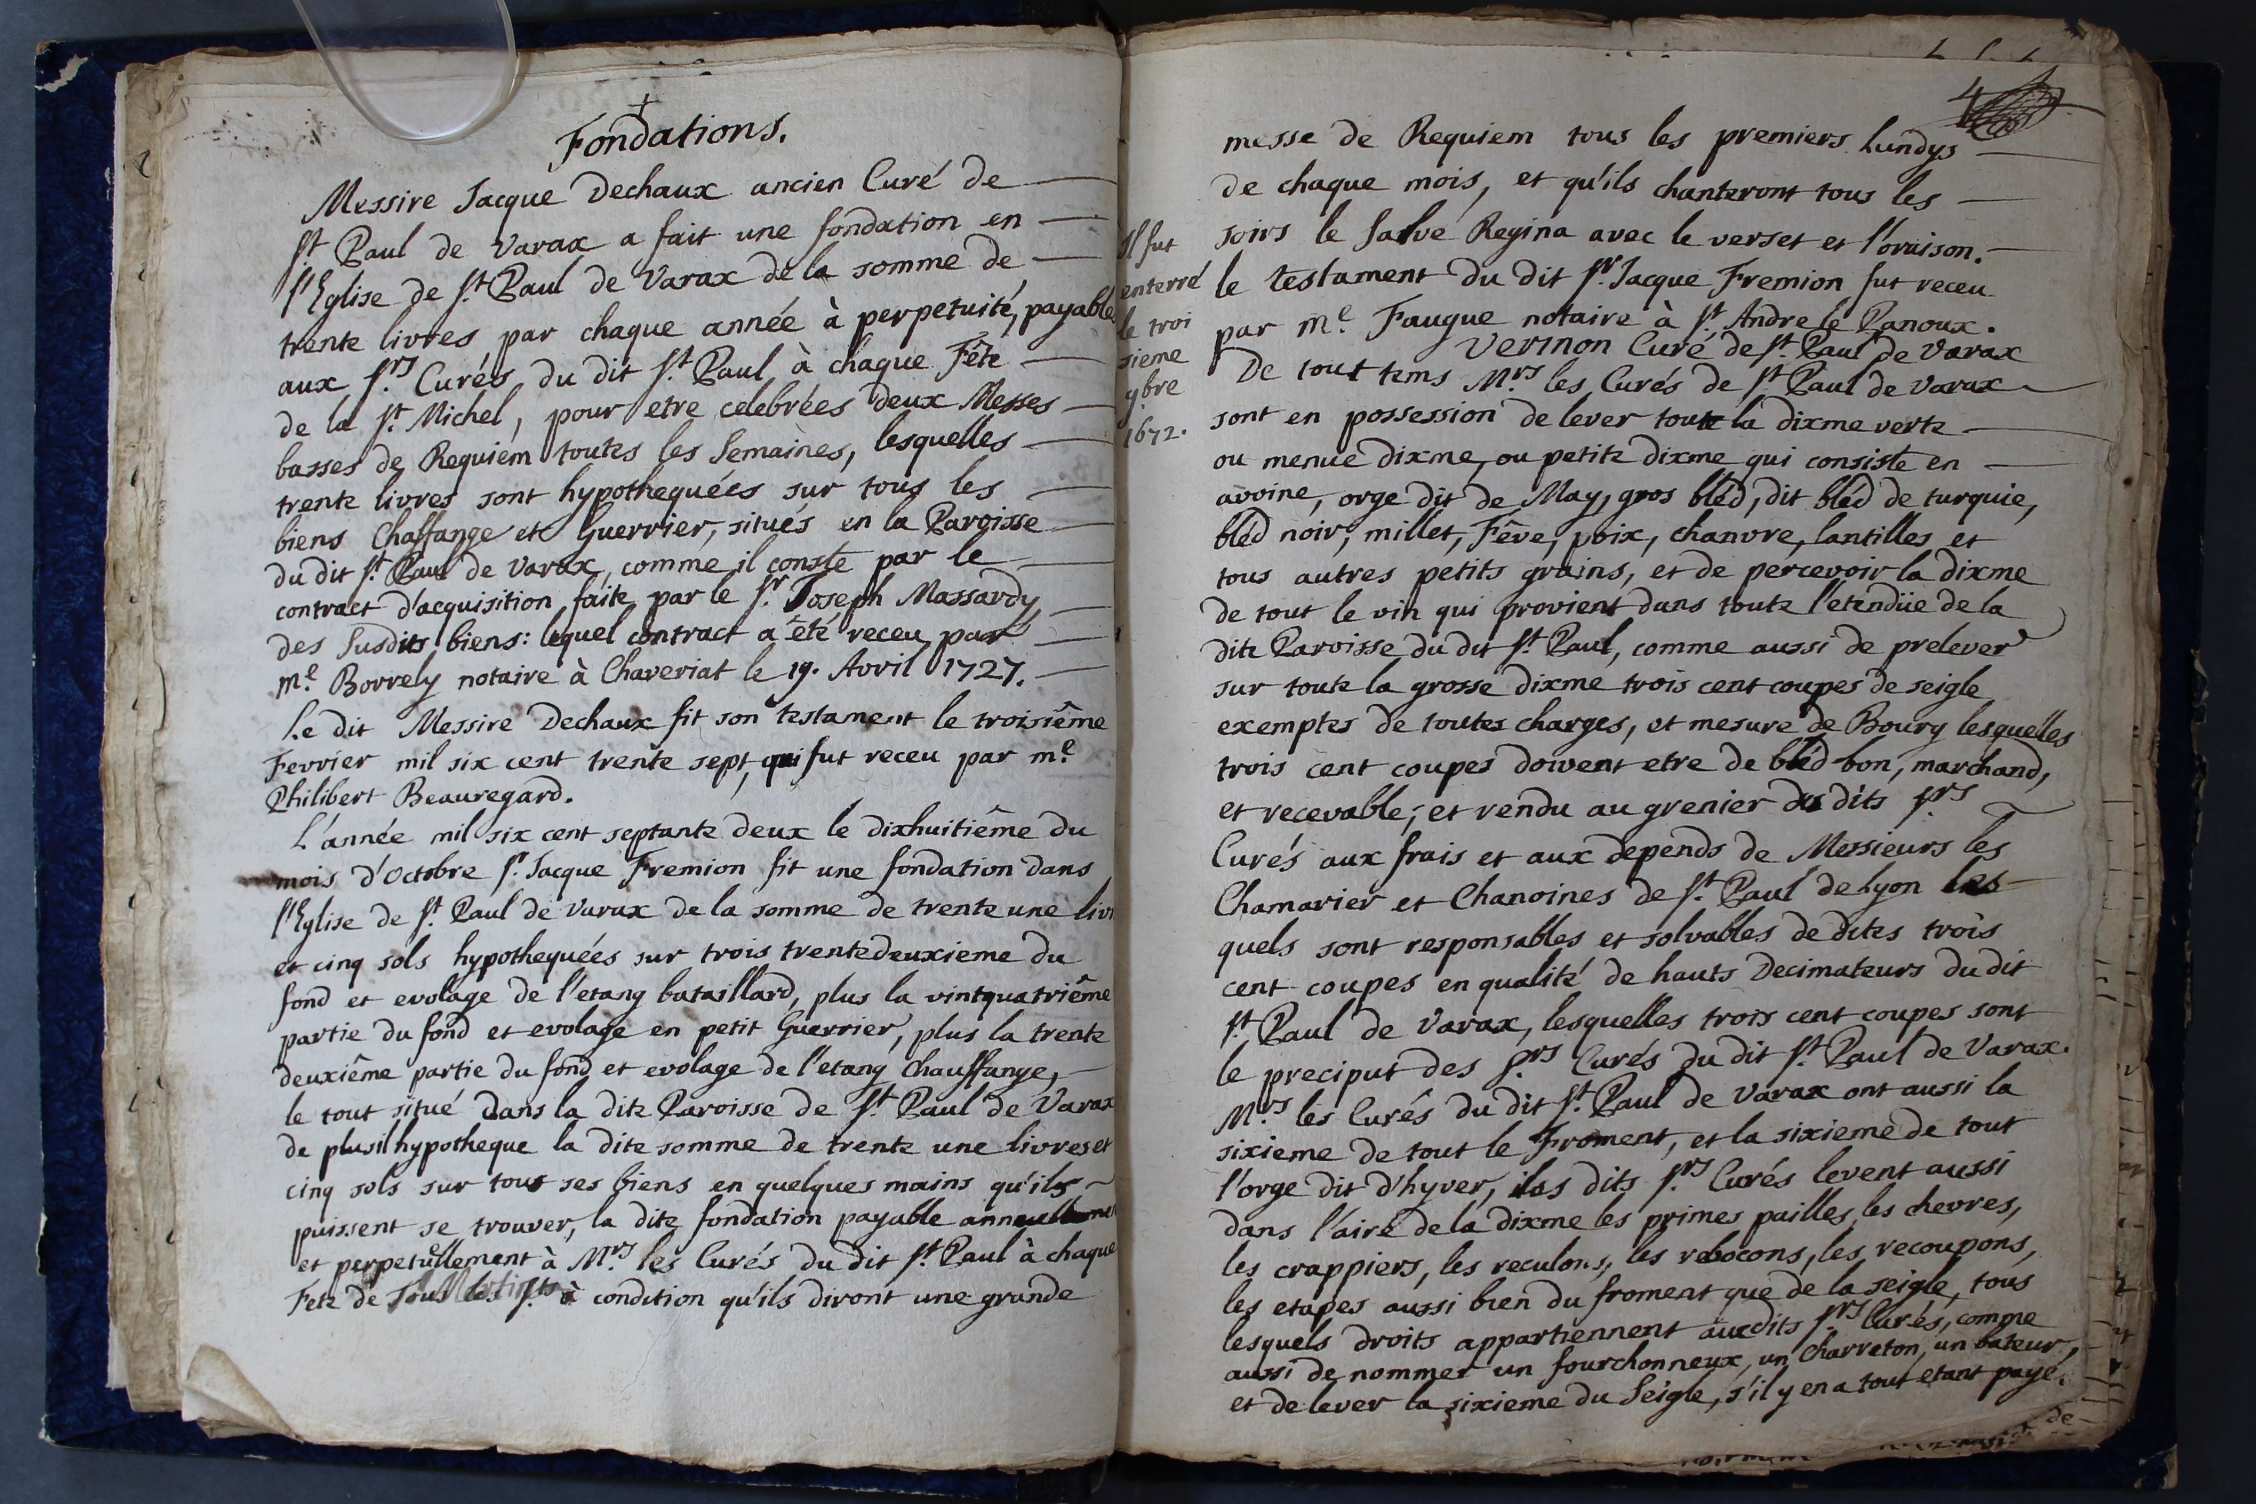 Fondations.
Messire Jacque Dechaux ancien Curé de
St. Paul de Varax a fait une fondation en
l'Eglise de St. Paul de Varax de la somme de
trente livres par chaque année à perpetuité, payables
aux Srs. Curés du dit St. Paul à chaque Fête
de la St. Michel, pour etre celebrées deux Messes
basses de Requiem toutes les Semaines, lesquelles
trente livres sont hypothequées sur tous les
biens Chaffange et Guerrier, situés en la Paroisse
du dit St. Paul de Varax, comme il conste par le
contract d'acquisition faite par le Sr. Joseph Massardy
des susdits biens: lequel contract a été receu par
me. Borrely notaire à Chaveriat le 19. Avril 1727.
Le dit Messire Dechaux fit son testament le troisiême
Fevrier mil six cent trente sept, qui fut receu par me.
Philibert Beauregard.
L'année mil six cent septante deux le dixhuitiême du
mois d'Octobre Sr. Jacque Fremion fit une fondation dans
l'Eglise de St. Paul de Varax de la somme de trente une liv
et cinq sols hypothequées sur trois trentedeuxieme du
fond et evolage de l'etang bataillard, plus la vintquatriême
partie du fond et evolage en petit Guerrier, plus la trente
deuxiême partie du fond et evolage de l'etang Chauffange,
le tout situé dans la dite Paroisse de St. Paul de Varax
de plus il hypotheque la dite somme de trente une livres et
cinq sols sur tous ses biens en quelques mains qu'ils
puissent se trouver, la dite fondation payable annuellement
et perpetuellement à Mrs. les Curés du dit St. Paul à chaque
Fete de à condition qu'ils diront une grande
4
messe de Requiem tous les premiers Lundys
de chaque mois, et qu'ils chanteront tous les
soirs le Salve Regina avec le verset et l'oraison.
le testament du dit Sr. Jacque Fremion fut receu
par me. Faugue notaire à St. Andre le Panoux.
Il fut
enterré
le troi
sieme
9bre
1672.
Verinon Curé de St. Paul de Varax
De tout tems Mrs. les Curés de St. Paul de Varax
sont en possession de lever toute la dixme verte
ou menue dixme, ou petite dixme qui consiste en
avoine, orge dit de May, gros bléd, dit bléd de turquie,
bléd noir, millet, Fêve, poix, chanvre, lantilles et
tous autres petits grains, et de percevoir la dixme
de tout le vin qui provient dans toute l'etendüe de la
dite Paroisse du dit St. Paul, comme aussi de prelever
sur toute la grosse dixme trois cent coupes de seigle
exemptes de toutes charges, et mesure de Bourg lesquelles
trois cent coupes doivent etre de bléd bon, marchand,
et recevable, et rendu au grenier des dits Srs.
Curés aux frais et aux depends de Messieurs les
Chamarier et Chanoines de St. Paul de Lyon les
quels sont responsables et solvables de dites trois
cent coupes en qualité de hauts Decimateurs du dit
St. Paul de Varax, lesquelles trois cent coupes sont
le preciput des Srs. Curés du dit St. Paul de Varax.
Mrs. les Curés du dit St. Paul de Varax ont aussi la
sixieme de tout le Froment, et la sixieme de tout
l'orge dit d'hyver, les dits Srs. Curés levent aussi
dans l'aire de la dixme les primes pailles, les chevres,
les crappiers, les reculons, les rebocons, les recoupons,
les etapes aussi bien du froment que de la seigle, tous
lesquels droits appartiennent auxdits Srs. Curés, comme
aussi de nommer un fourchonneux, un Charreton, un bateur,
et de lever la sixieme du Seigle, s'il y en a tout etant payé.